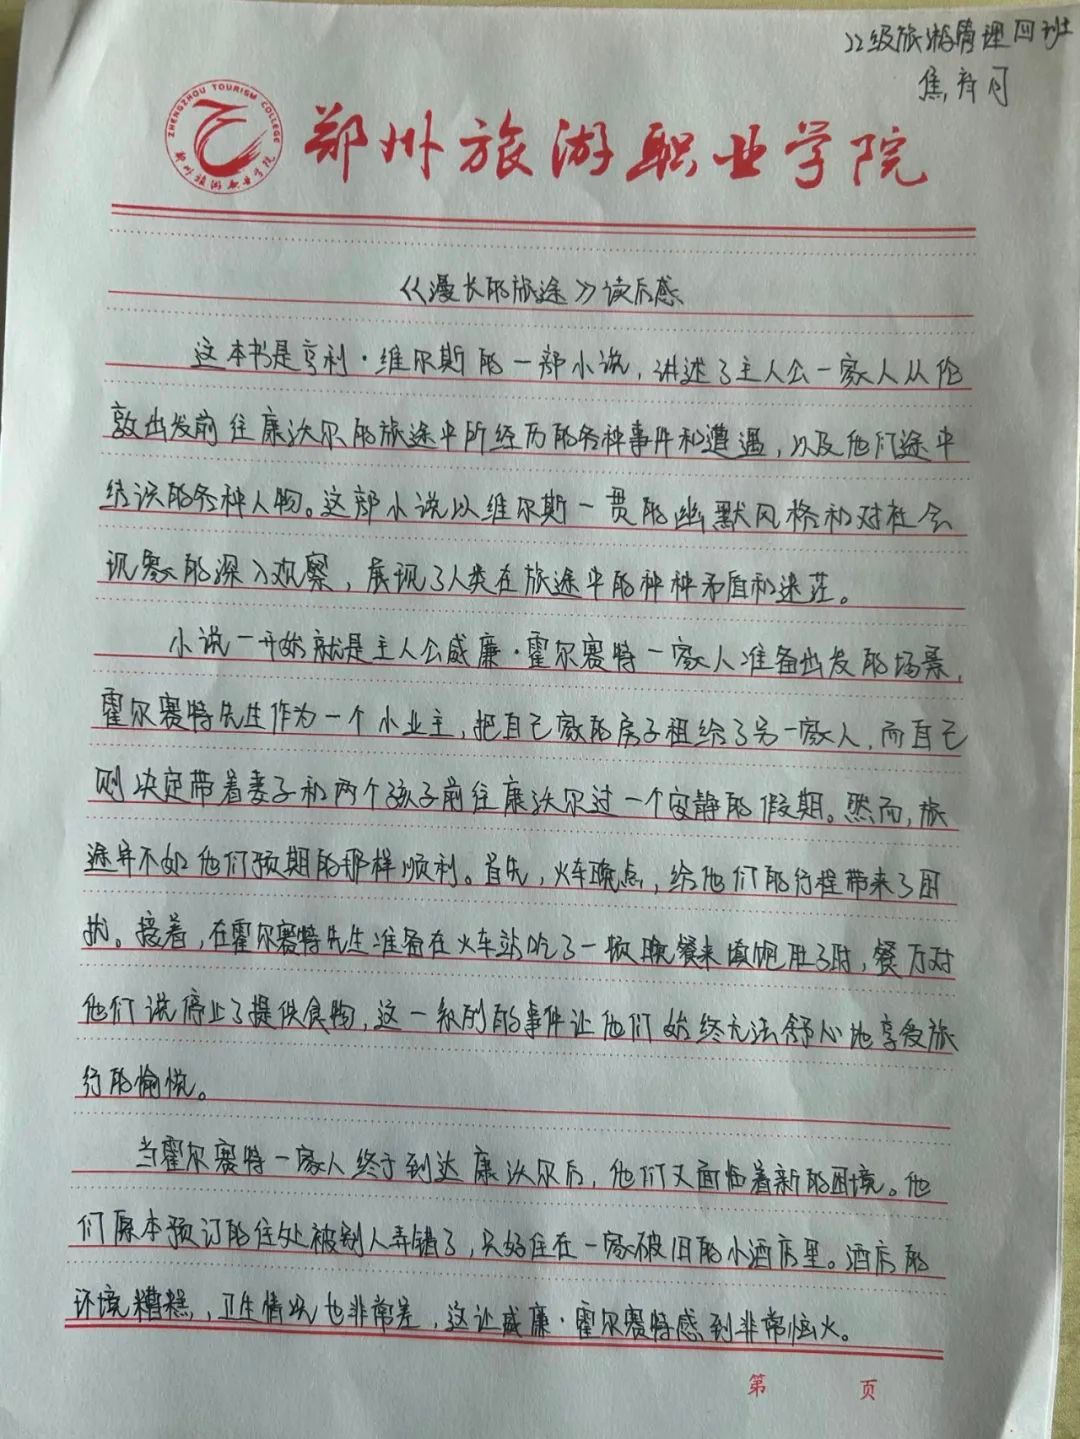 22级旅游管理四班
焦
ZHENGZHOU TOURISM COLLEGE
郑州旅游职业学院
郑州旅游职业学院
《漫长的旅途》读后感
这本书是亨利·维尔斯的一部小说,讲述了主人公一家人从伦
敦出发前往康沃尔的旅途中所经历的各种事件和遭遇,以及他们途中
结识的各种人物。这部小说以维尔斯一贯的幽默风格和对社会
现象的深入观察,展现了人类在旅途中的种种矛盾和迷茫。
小说一开始就是主人公威廉·霍尔赛特一家人准备出发的场景,
霍尔赛特先生作为一个小业主,把自己家的房子租给了另一家人,而自己
则决定带着妻子和两个孩子前往康沃尔过一个安静的假期。然而,旅
途并不如他们预期的那样顺利。首先,火车晚点,给他们的行程带来了困
扰。接着,在霍尔赛特先生准备在火车站吃了一顿晚餐来填饱肚子时,餐厅对
他们说停止了提供食物,这一系列的事件让他们始终无法舒心地享受旅
行的愉悦。
当霍尔赛特一家人终于到达康沃尔后,他们又面临着新的困境。他
们原本预订的住处被别人弄错了,只好住在一家破旧的小酒店里。酒店的
环境糟糕,卫生情况也非常差,这让威廉·霍尔赛特感到非常恼火。
第 页